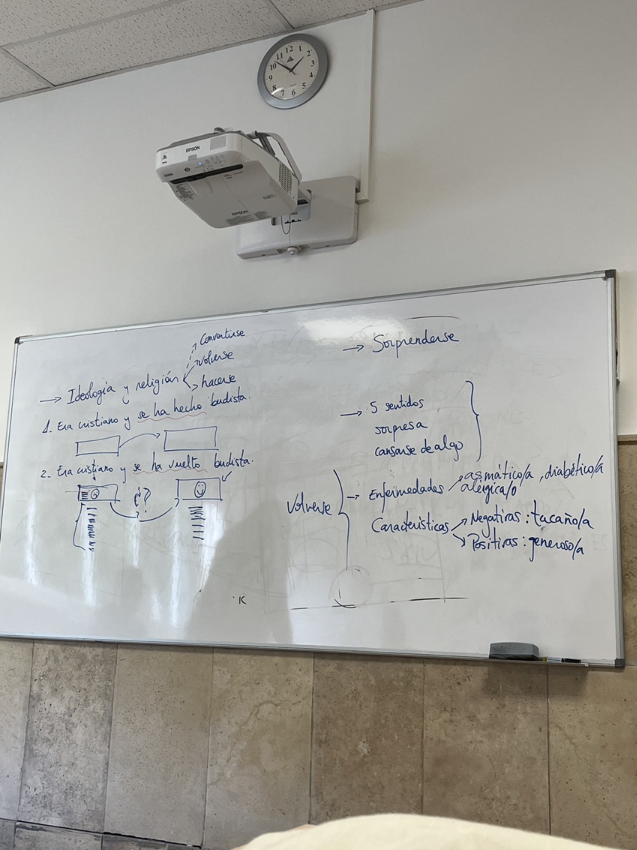 12
1
2
3
4
5
6
7
8
9
10
11
EPSON
EPSON
Convertirse
Volverse
→ Ideología y religión
hacerse
1. Era cristiano y se ha hecho budista.
2. Era cristiano y se ha vuelto budista.
¿?
→ Sorprenderse
→ 5 sentidos
sorpresa
cansarse de algo
Volverse
→ Enfermedades → asmático/a, diabético/a
alérgica/o
Características → Negativas: tacaño/a
→ Positivas: generoso/a
K